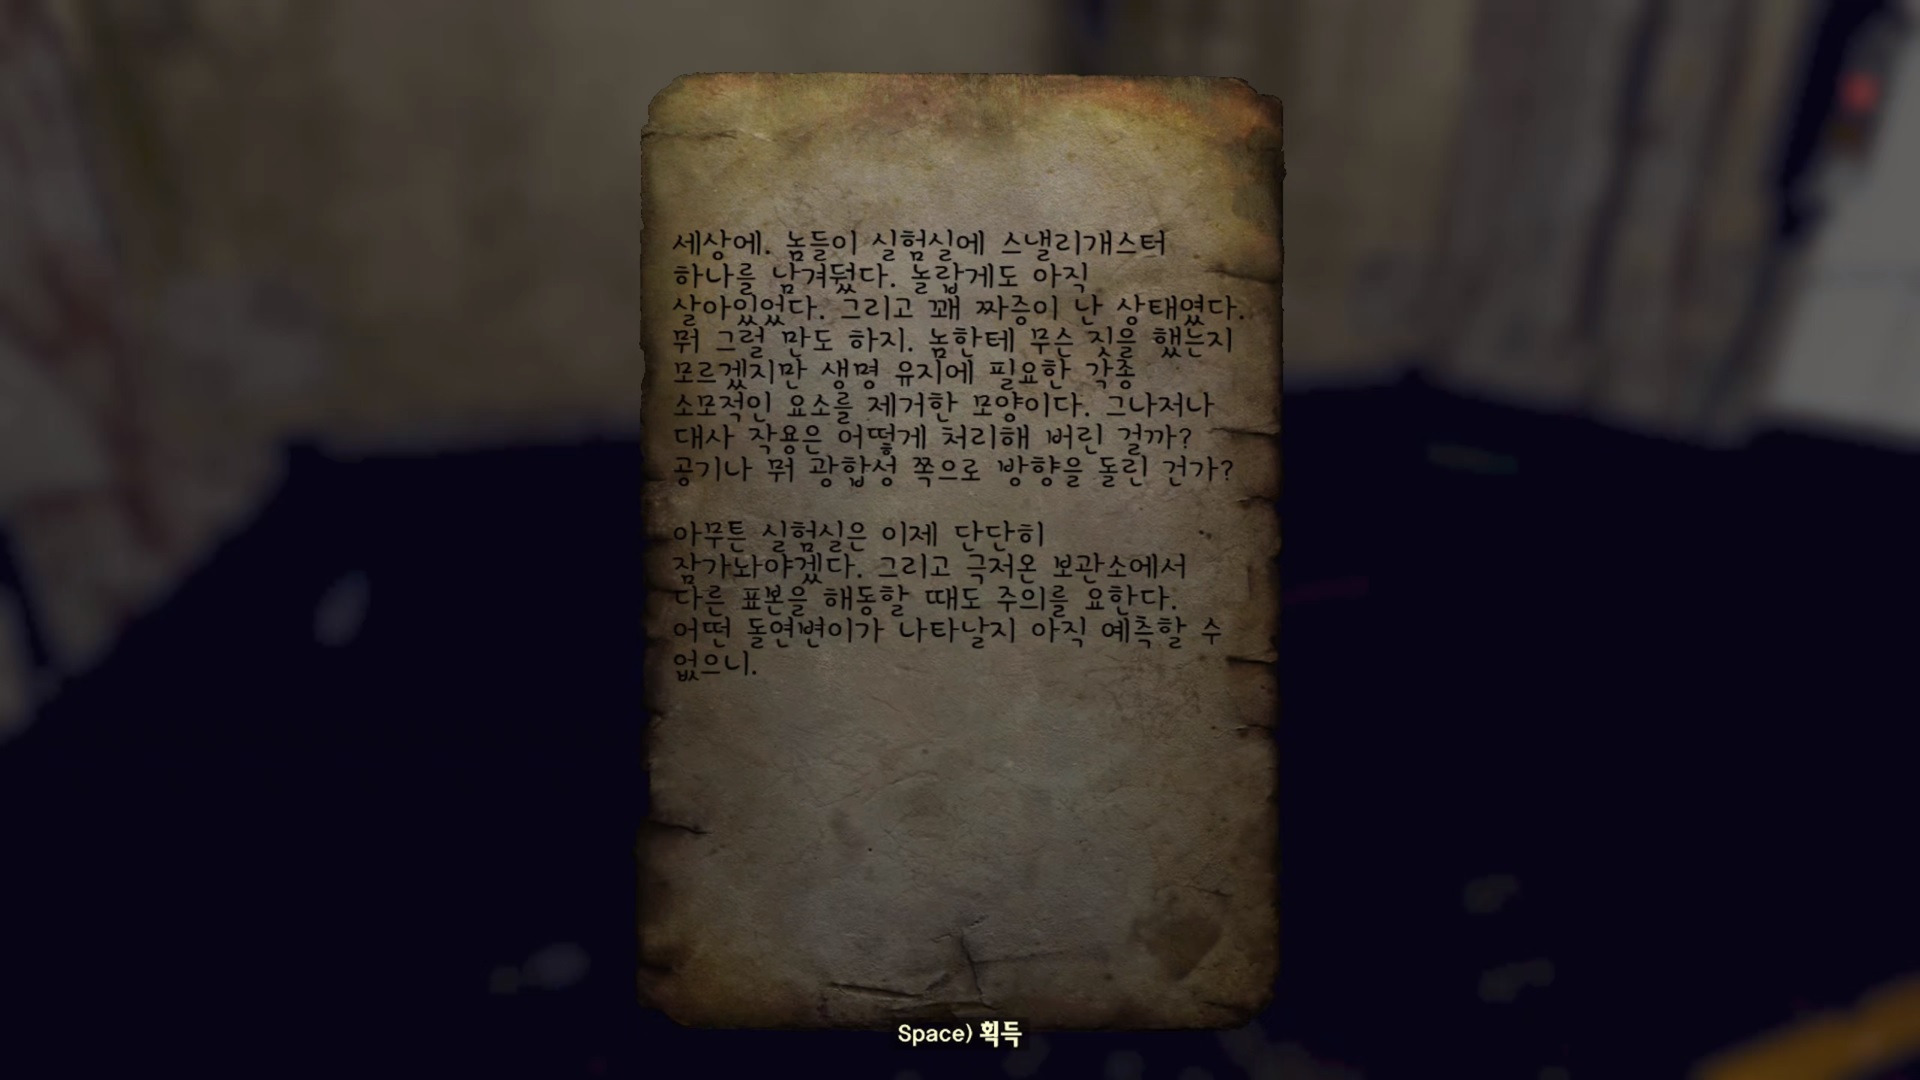 세상에. 놈들이 실험실에 스낼리개스터
하나를 남겨뒀다. 놀랍게도 아직
살아있었다. 그리고 꽤 짜증이 난 상태였다.
뭐 그럴 만도 하지. 놈한테 무슨 짓을 했는지
모르겠지만 생명 유지에 필요한 각종
소모적인 요소를 제거한 모양이다. 그나저나
대사 작용은 어떻게 처리해 버린 걸까?
공기나 뭐 광합성 쪽으로 방향을 돌린 건가?
아무튼 실험실은 이제 단단히
잠가놔야겠다. 그리고 극저온 보관소에서
다른 표본을 해동할 때도 주의를 요한다.
어떤 돌연변이가 나타날지 아직 예측할 수
없으니.
Space) 획득